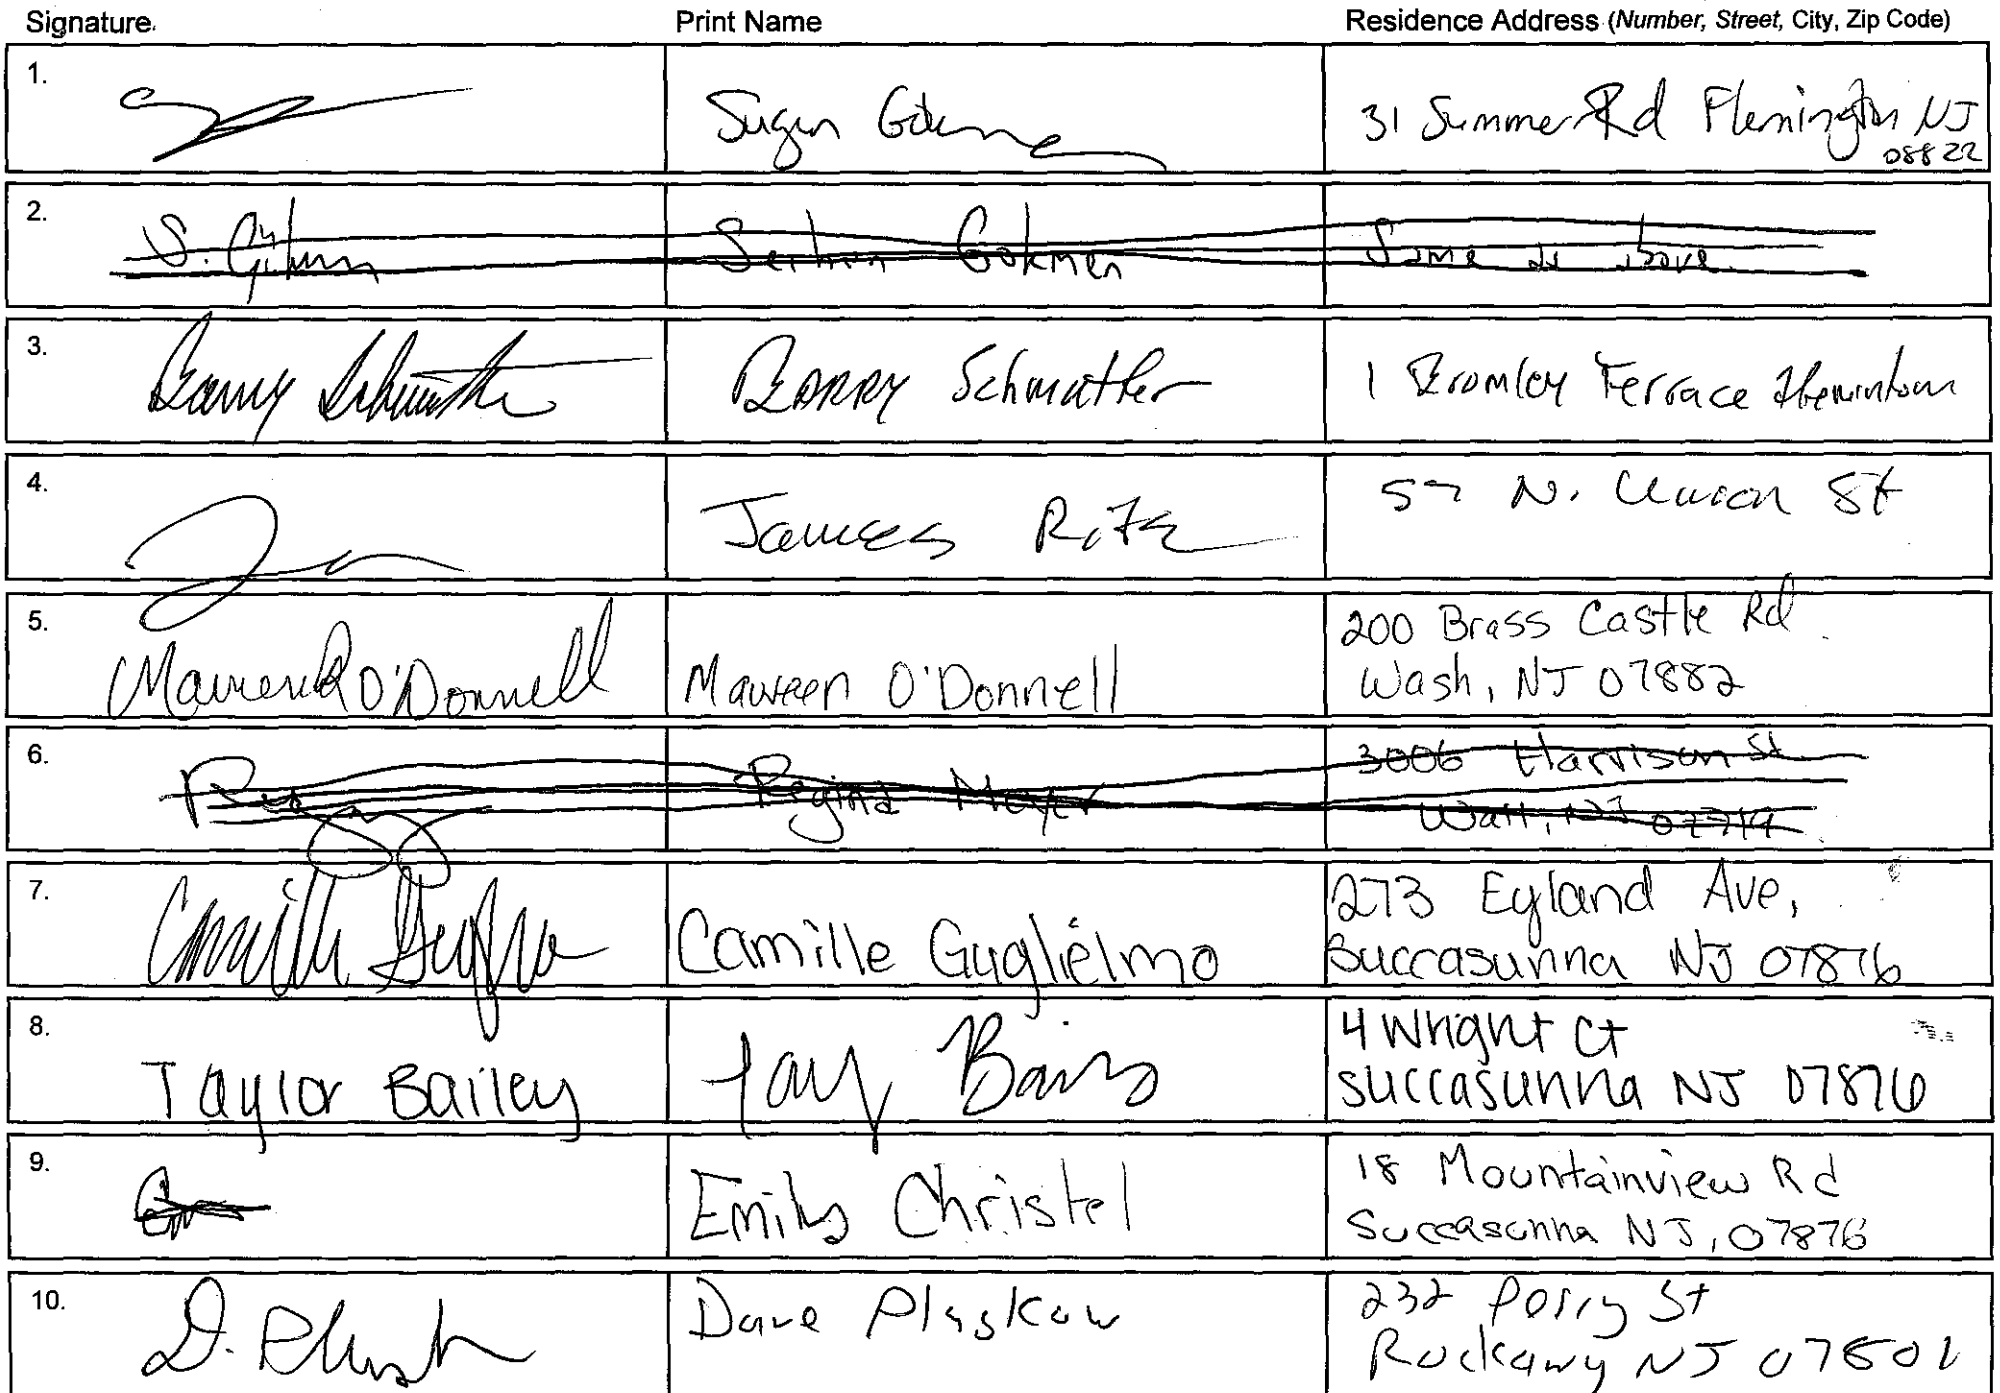 Signature Print Name Residence Address (Number, Street, City, Zip Code)
1. 31 Summer Rd Flemington NJ
08822
2. S. Gokmen Gokmen Same as above
3. Barry BARRY Schmatter 1 Bromley Terrace
4. James N. Union St
5. Maureen O'Donnell Maureen O'Donnell 200 Brass Castle Rd.
Wash, NJ 07882
6. Regina Meyer 3006 Harrison St.
Wall, NJ 07719
7. Camille Camille Guglielmo 273 Eyland Ave,
Succasunna NJ 07876
8. Taylor Bailey 4 Wright Ct
Succasunna NJ 07876
9. Emily Christel 18 Mountainview Rd
Succasunna NJ, 07876
10. D. Dave Plaskow 232 Perry St
Rockaway NJ